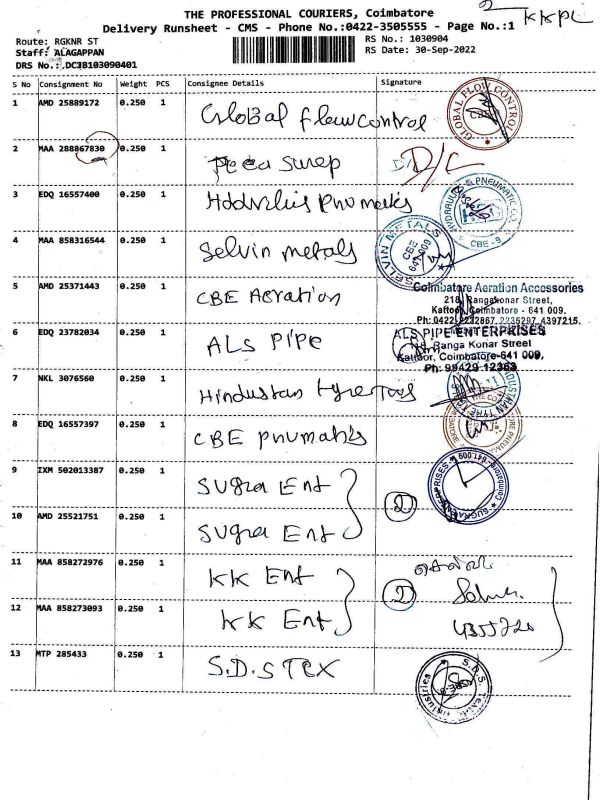 THE PROFESSIONAL COURIERS, Coimbatore
KKPL
Delivery Runsheet - CMS - Phone No.:0422-3505555 - Page No.:1
Route: RGKNR ST
RS No.: 1030904
Staff: ALAGAPPAN
RS Date: 30-Sep-2022
DRS No.:.DCJB103090401
S No Consignment No Weight PCS Consignee Details Signature
1 AMD 25889172 0.250 1 Global flow control
GLOBAL FLOW CONTROL
2 MAA 288867830 0.250 1 D/C
3 EDQ 16557400 0.250 1
CBE - 9
4 MAA 858316544 0.250 1 Selvin metals
SELVIN METALS CBE 641 009
5 AMD 25371443 0.250 1 CBE Aeration
Coimbatore Aeration Accessories
218, Rangakonar Street,
Kattoor, Coimbatore - 641 009.
Ph: 0422-2232867, 2235297, 4397215.
6 EDQ 23782034 0.250 1 ALS PIPE
ALS PIPE ENTERPRISES
Ranga Konar Street
Kattoor, Coimbatore-641 009.
Ph: 99429 12363
7 NKL 3076560 0.250 1 Hindustan
8 EDQ 16557397 0.250 1 CBE
9 IXM 502013387 0.250 1 Sugra Ent
10 AMD 25521751 0.250 1 Sugra Ent
2
11 MAA 858272976 0.250 1 KK Ent
12 MAA 858273093 0.250 1 KK Ent
2
13 MTP 285433 0.250 1 S.D.S TEX